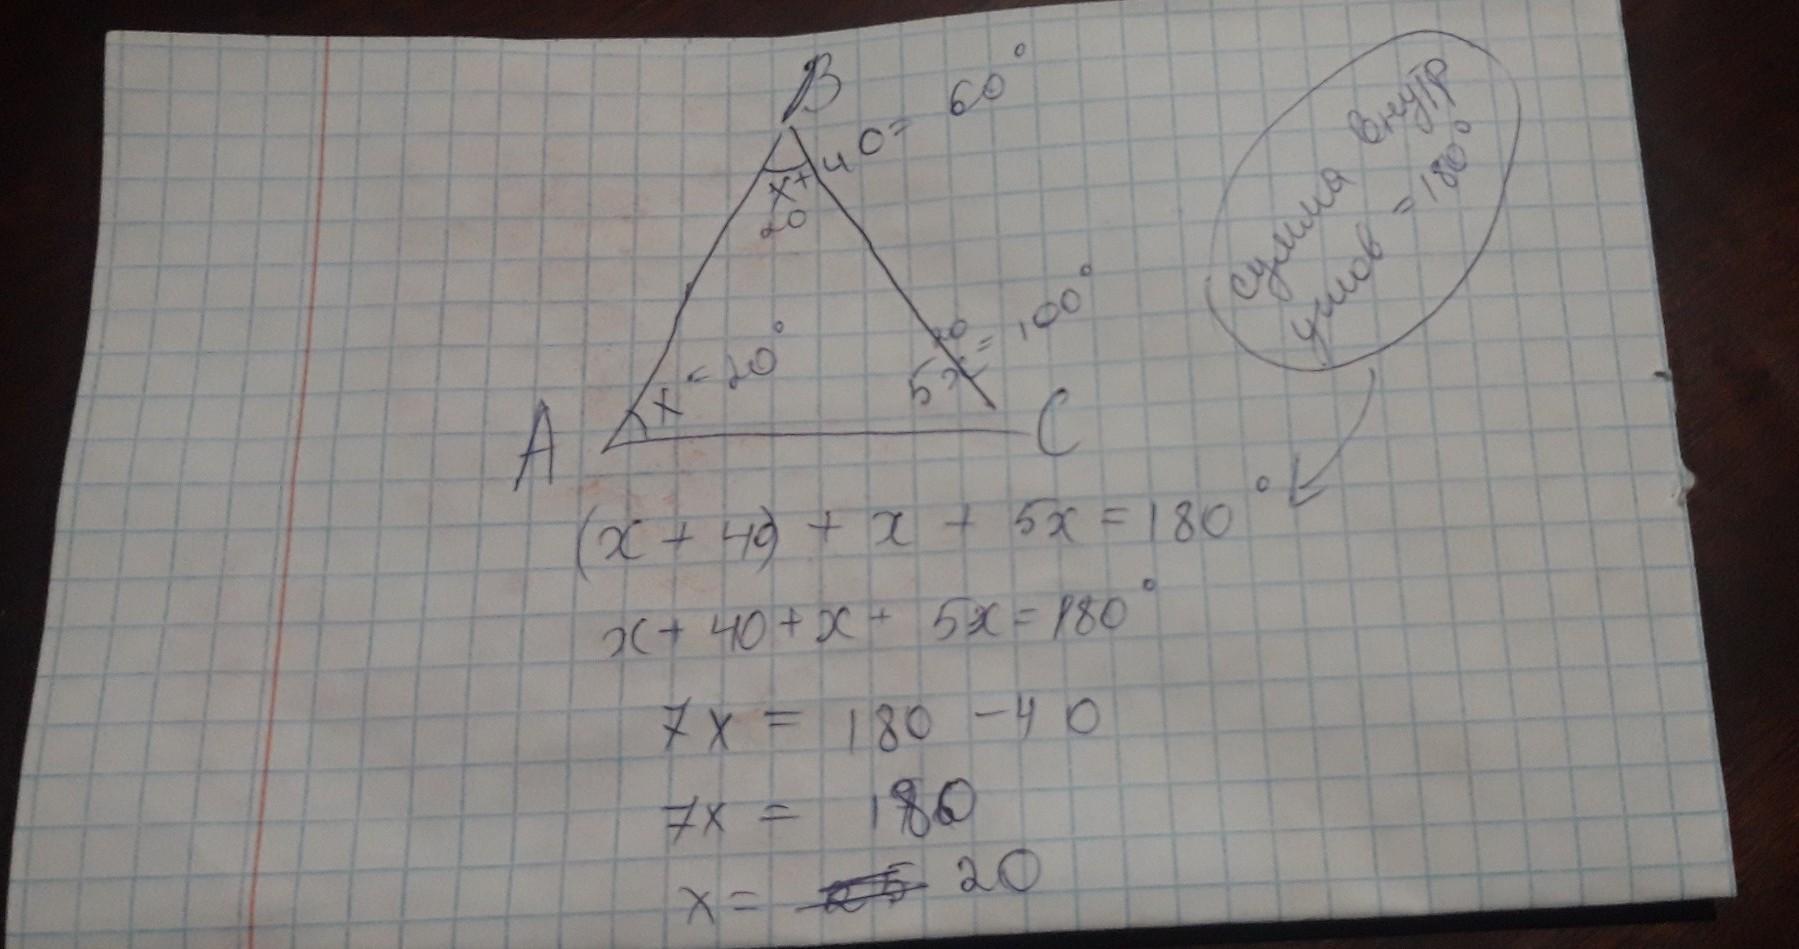 B
x + 40 = 60°
20
сумма внутр
углов = 180°
x = 20°
20
5x = 100°
A
C
(x + 40) + x + 5x = 180°
x + 40 + x + 5x = 180°
7x = 180 - 40
7x = 180
x = 20